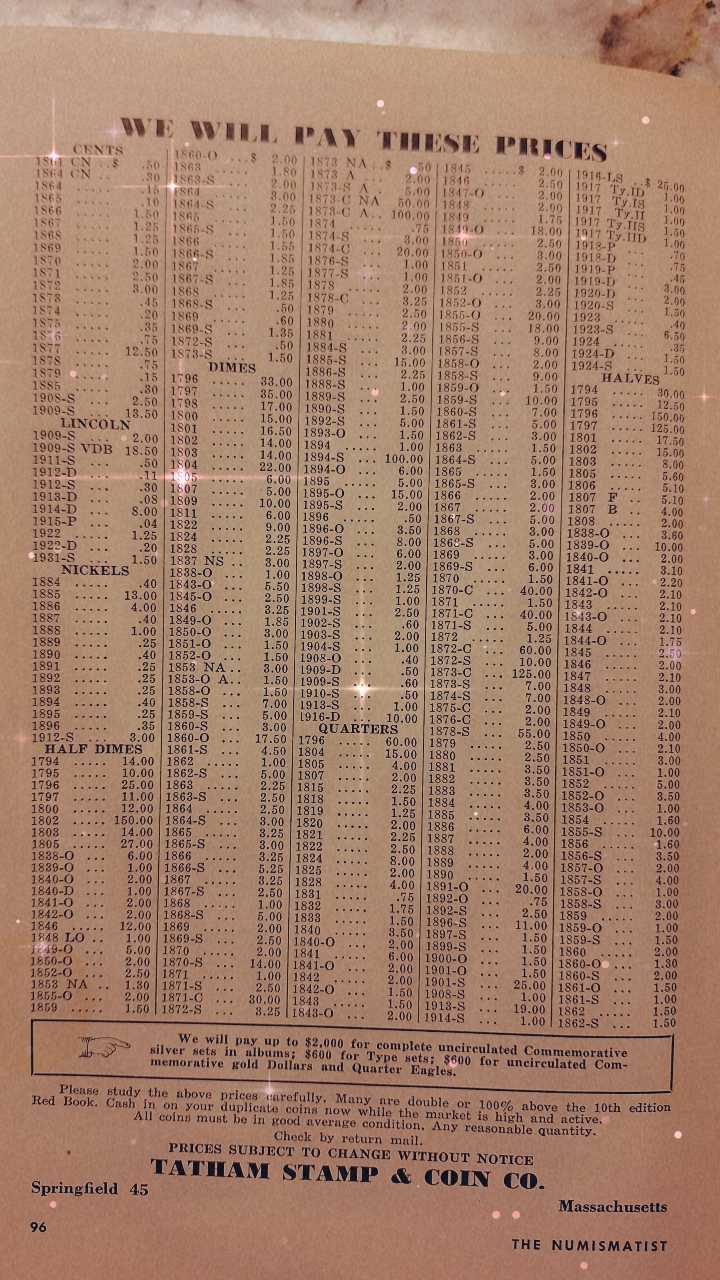 WE WILL PAY THESE PRICES
CENTS
1861 CN .. $ .50
1864 CN ... .30
1864 ..... .15
1865 ..... .10
1866 ..... 1.50
1867 ..... 1.25
1868 ..... 1.25
1869 ..... 1.50
1870 ..... 2.00
1871 ..... 2.50
1872 ..... 3.00
1873 ..... .45
1874 ..... .20
1875 ..... .35
1876 ..... .75
1877 ..... 12.50
1878 ..... .75
1879 ..... .15
1885 ..... .30
1908-S ... 2.50
1909-S ... 13.50
LINCOLN
1909-S ... 2.00
1909-S VDB 18.50
1911-S ... .50
1912-D ... .11
1912-S ... .30
1913-D ... .08
1914-D ... 8.00
1915-P ... .04
1922 ..... 1.25
1922-D ... .20
1931-S ... 1.50
NICKELS
1884 ..... .40
1885 ..... 13.00
1886 ..... 4.00
1887 ..... .40
1888 ..... 1.00
1889 ..... .25
1890 ..... .40
1891 ..... .25
1892 ..... .25
1893 ..... .25
1894 ..... .40
1895 ..... .25
1896 ..... .35
1912-S ... 3.00
HALF DIMES
1794 ..... 14.00
1795 ..... 10.00
1796 ..... 25.00
1797 ..... 11.00
1800 ..... 12.00
1802 ..... 150.00
1803 ..... 14.00
1805 ..... 27.00
1838-O ... 6.00
1839-O ... 1.00
1840-O ... 2.00
1840-D ... 1.00
1841-O ... 2.00
1842-O ... 2.00
1846 ..... 12.00
1848 LO .. 1.00
1849-O ... 5.00
1850-O ... 2.00
1852-O ... 2.50
1853 NA .. 1.30
1855-O ... 2.00
1859 ..... 1.50
1860-O ... $ 2.00
1863 ..... 1.80
1863-S ... 2.00
1864 ..... 3.00
1864-S ... 2.25
1865 ..... 1.50
1865-S ... 1.50
1866 ..... 1.55
1866-S ... 1.85
1867 ..... 1.25
1867-S ... 1.85
1868 ..... 1.25
1868-S ... .50
1869 ..... .60
1869-S ... 1.35
1872-S ... .50
1873-S ... 1.50
DIMES
1796 ..... 33.00
1797 ..... 35.00
1798 ..... 17.00
1800 ..... 15.00
1801 ..... 16.50
1802 ..... 14.00
1803 ..... 14.00
1804 ..... 22.00
1805 ..... 6.00
1807 ..... 5.00
1809 ..... 10.00
1811 ..... 6.00
1822 ..... 9.00
1824 ..... 2.25
1828 ..... 2.25
1837 NS .. 3.00
1838-O ... 1.00
1843-O ... 5.50
1845-O ... 2.50
1846 ..... 3.25
1849-O ... 1.85
1850-O ... 3.00
1851-O ... 1.50
1852-O ... 1.50
1853 NA .. 3.00
1853-O A.. 1.50
1858-O ... 1.50
1858-S ... 7.00
1859-S ... 5.00
1860-S ... 3.00
1860-O ... 17.50
1861-S ... 4.50
1862 ..... 1.00
1862-S ... 5.00
1863 ..... 2.25
1863-S ... 2.50
1864 ..... 2.50
1864-S ... 3.00
1865 ..... 3.25
1865-S ... 3.00
1866 ..... 3.25
1866-S ... 5.25
1867 ..... 3.25
1867-S ... 2.50
1868 ..... 1.00
1868-S ... 5.00
1869 ..... 2.00
1869-S ... 2.50
1870 ..... 2.00
1870-S ... 14.00
1871 ..... 1.00
1871-S ... 2.50
1871-C ... 30.00
1872-S ... 3.25
1873 NA .. $ .50
1873 A ... 2.00
1873-S A . 5.00
1873-C NA 50.00
1873-C A .. 100.00
1874 ..... .75
1874-S ... 3.00
1874-C ... 20.00
1876-S ... 1.00
1877-S ... 1.00
1878 ..... 2.00
1878-C ... 3.25
1879 ..... 2.50
1880 ..... 2.00
1881 ..... 2.25
1884-S ... 3.00
1885-S ... 15.00
1886-S ... 2.25
1888-S ... 1.00
1889-S ... 2.50
1890-S ... 1.50
1892-S ... 5.00
1893-O ... 1.50
1894 ..... 1.00
1894-S ... 100.00
1894-O ... 6.00
1895 ..... 5.00
1895-O ... 15.00
1895-S ... 2.00
1896 ..... .50
1896-O ... 3.50
1896-S ... 8.00
1897-O ... 6.00
1897-S ... 2.00
1898-O ... 1.25
1898-S ... 1.25
1899-S ... 1.00
1901-S ... 2.50
1902-S ... .60
1903-S ... 2.00
1904-S ... 1.00
1908-O ... .40
1909-D ... .50
1909-S ... .60
1910-S ... .50
1913-S ... 1.00
1916-D ... 10.00
QUARTERS
1796 ..... 60.00
1804 ..... 15.00
1805 ..... 4.00
1807 ..... 2.00
1815 ..... 2.25
1818 ..... 1.50
1819 ..... 1.25
1820 ..... 2.00
1821 ..... 2.25
1822 ..... 2.50
1824 ..... 8.00
1825 ..... 2.00
1828 ..... 4.00
1831 ..... .75
1832 ..... 1.75
1833 ..... 1.50
1840 ..... 3.50
1840-O ... 2.00
1841 ..... 6.00
1841-O ... 2.00
1842 ..... 2.00
1842-O ... 1.50
1843 ..... 1.50
1843-O ... 2.00
1845 ..... $ 2.00
1846 ..... 2.50
1847-O ... 2.00
1848 ..... 2.00
1849 ..... 1.75
1849-O ... 18.00
1850 ..... 2.50
1850-O ... 3.00
1851 ..... 2.50
1851-O ... 2.00
1852 ..... 2.25
1852-O ... 3.00
1855-O ... 20.00
1855-S ... 18.00
1856-S ... 9.00
1857-S ... 8.00
1858-S ... 9.00
1859-O ... 1.50
1859-S ... 10.00
1860-S ... 7.00
1861-S ... 5.00
1862-S ... 3.00
1863 ..... 1.50
1864-S ... 5.00
1865 ..... 1.50
1865-S ... 3.00
1866 ..... 2.00
1867 ..... 2.00
1867-S ... 5.00
1868 ..... 3.00
1868-S ... 5.00
1869 ..... 3.00
1869-S ... 6.00
1870 ..... 1.50
1870-C ... 40.00
1871 ..... 1.50
1871-C ... 40.00
1871-S ... 5.00
1872 ..... 1.25
1872-C ... 60.00
1872-S ... 10.00
1873-C ... 125.00
1873-S ... 7.00
1874-S ... 7.00
1875-C ... 2.00
1876-C ... 2.00
1878-S ... 55.00
1879 ..... 2.50
1880 ..... 2.50
1881 ..... 3.50
1882 ..... 3.50
1883 ..... 3.50
1884 ..... 4.00
1885 ..... 3.50
1886 ..... 6.00
1887 ..... 4.00
1888 ..... 2.00
1889 ..... 4.00
1890 ..... 1.50
1891-O ... 20.00
1892-O ... .75
1892-S ... 2.50
1896-S ... 11.00
1897-S ... 1.50
1899-S ... 1.50
1900-O ... 1.50
1901-O ... 1.50
1901-S ... 25.00
1908-S ... 1.00
1913-S ... 19.00
1914-S ... 1.00
1916-LS ... $ 25.00
1917 Ty.ID 1.00
1917 Ty.IS 1.00
1917 Ty.II 1.00
1917 Ty.IIS 1.00
1917 Ty.IID 1.00
1918-P ... .70
1918-D ... .75
1919-P ... .45
1919-D ... 3.00
1920-D ... 2.00
1920-S ... 1.50
1923 ..... .40
1923-S ... 6.50
1924 ..... .35
1924-D ... 1.50
1924-S ... 1.50
HALVES
1794 ..... 30.00
1795 ..... 12.50
1796 ..... 150.00
1797 ..... 125.00
1801 ..... 17.50
1802 ..... 15.00
1803 ..... 8.00
1805 ..... 5.60
1806 ..... 5.10
1807 F .. 5.10
1807 B .. 4.00
1808 ..... 2.00
1838-O ... 3.60
1839-O ... 10.00
1840-O ... 2.00
1841 ..... 3.10
1841-O ... 2.20
1842-O ... 2.10
1843 ..... 2.10
1843-O ... 2.10
1844 ..... 2.10
1844-O ... 1.75
1845 ..... 2.50
1846 ..... 2.00
1847 ..... 2.10
1848 ..... 3.00
1848-O ... 2.00
1849 ..... 2.10
1849-O ... 2.00
1850 ..... 4.00
1850-O ... 2.10
1851 ..... 3.00
1851-O ... 1.00
1852 ..... 5.00
1852-O ... 3.50
1853-O ... 1.00
1854 ..... 1.60
1855-S ... 10.00
1856 ..... 1.60
1856-S ... 3.50
1857-O ... 2.00
1857-S ... 4.00
1858-O ... 1.00
1858-S ... 3.00
1859 ..... 2.00
1859-O ... 1.00
1859-S ... 1.50
1860 ..... 2.00
1860-O ... 1.30
1860-S ... 2.00
1861-O ... 1.50
1861-S ... 1.00
1862 ..... 1.50
1862-S ... 1.50
We will pay up to $2,000 for complete uncirculated Commemorative
silver sets in albums; $600 for Type sets; $600 for uncirculated Com-
memorative gold Dollars and Quarter Eagles.
Please study the above prices carefully. Many are double or 100% above the 10th edition
Red Book. Cash in on your duplicate coins now while the market is high and active.
All coins must be in good average condition. Any reasonable quantity.
Check by return mail.
PRICES SUBJECT TO CHANGE WITHOUT NOTICE
TATHAM STAMP & COIN CO.
Springfield 45
Massachusetts
96
THE NUMISMATIST